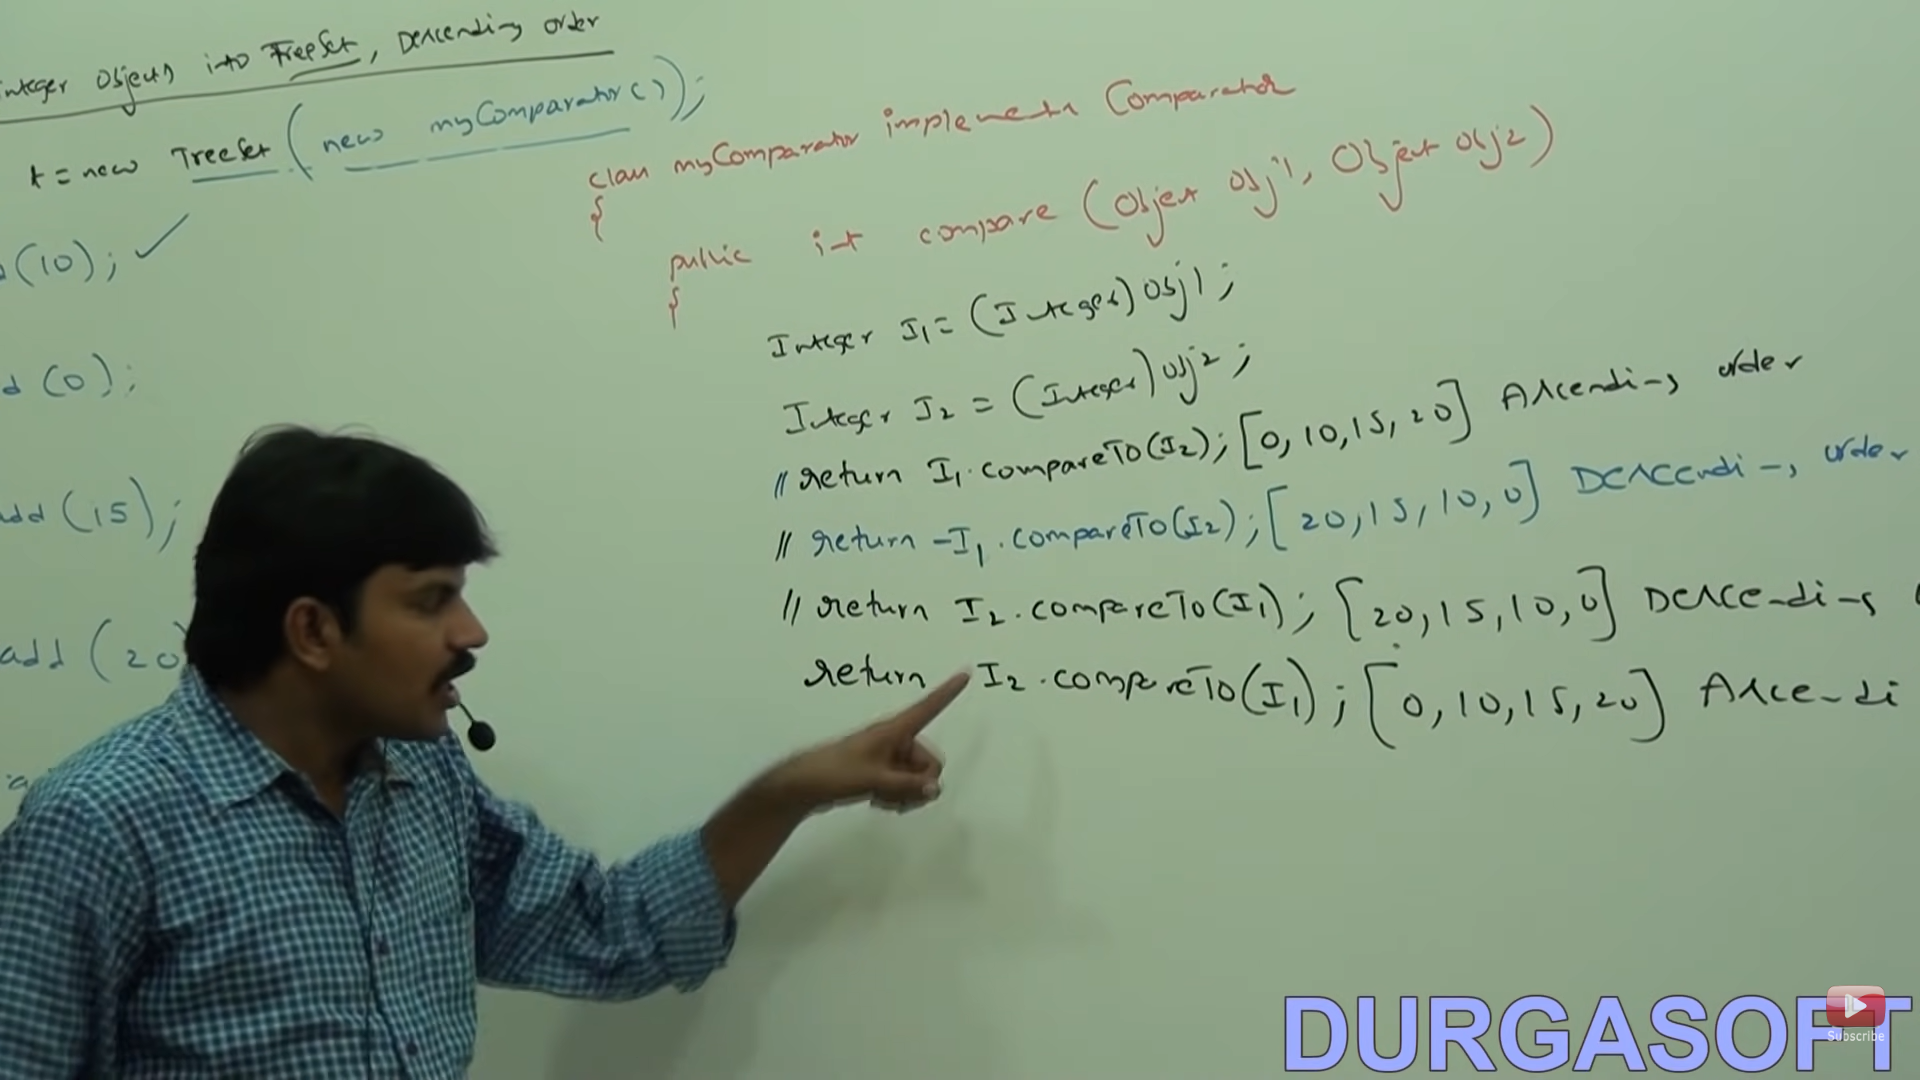 Integer Objects into TreeSet, Descending order
t = new TreeSet (new myComparator());
(10); ✓
d (0);
add (15);
add (20)
class myComparator implements Comparator
{
public int compare (Object obj1, Object obj2)
{
Integer I1 = (Integer) obj1;
Integer I2 = (Integer) obj2;
// return I1.compareTo(I2); [0, 10, 15, 20] Ascending order
// return -I1.compareTo(I2); [20, 15, 10, 0] Descending order
// return I2.compareTo(I1); [20, 15, 10, 0] Descending
return I2.compareTo(I1); [0, 10, 15, 20] Ascendi
DURGASOFT
Subscribe